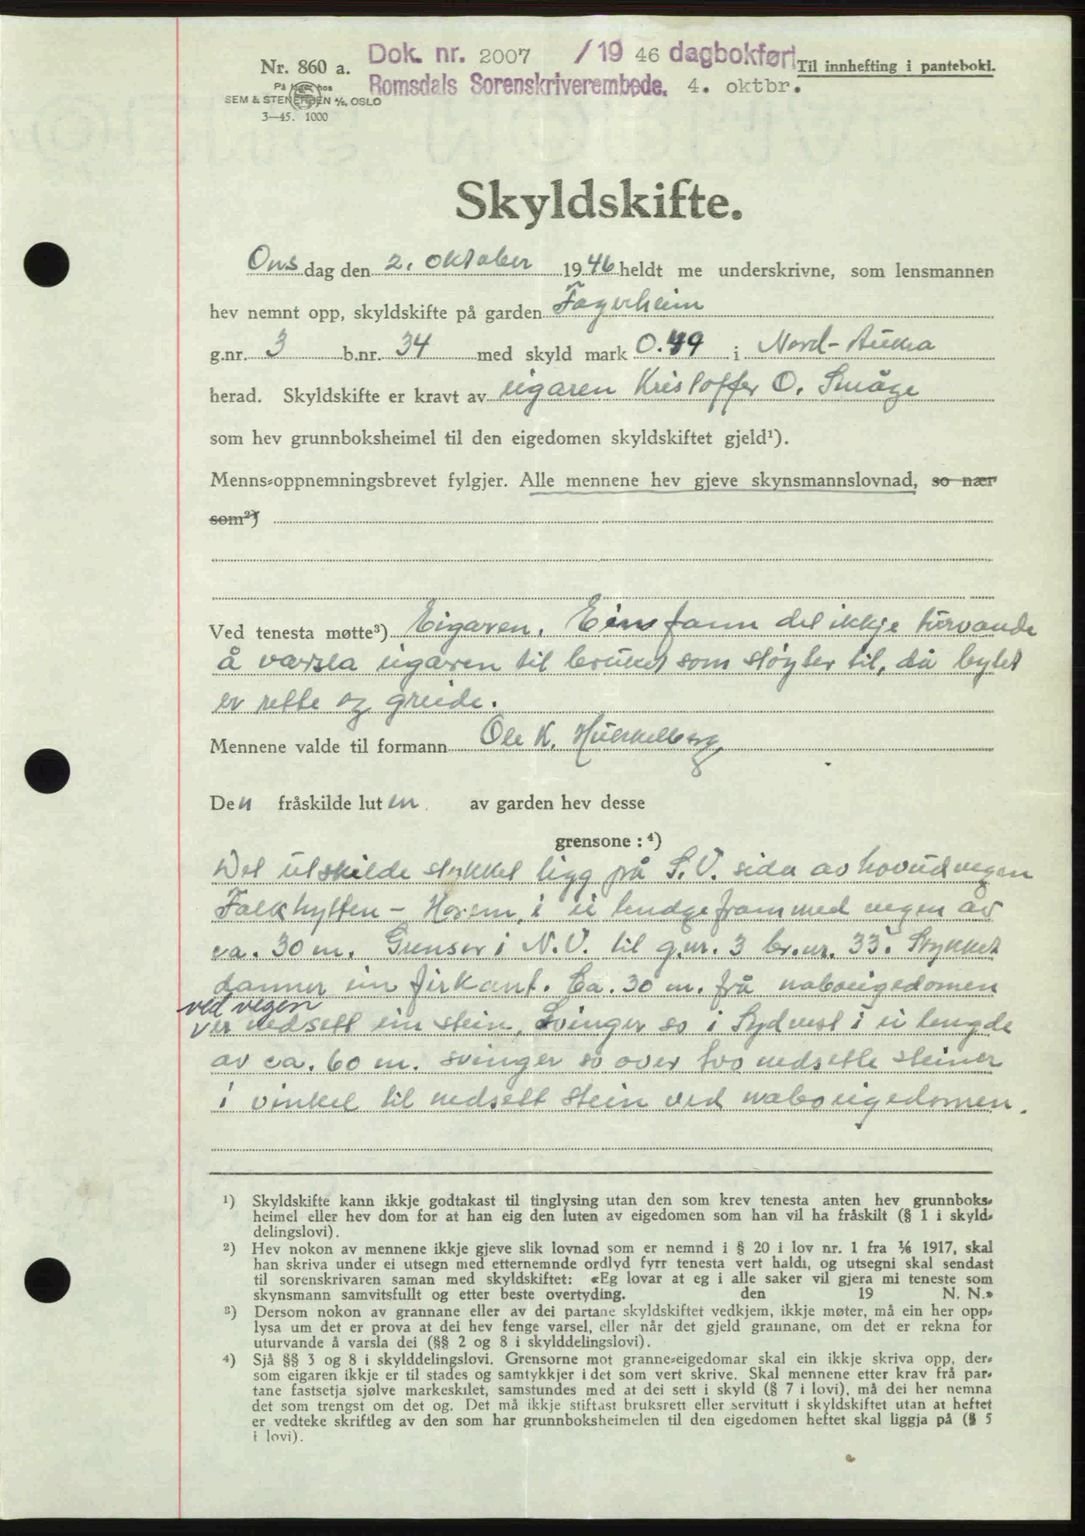 Nr. 860 a.
På lager hos
SEM & STENERSEN A/S, OSLO
3—45. 1000
Dok. nr. 2007 /1946 dagbokført
Romsdals Sorenskriverembede. 4. oktbr.
Til innhefting i pantebokl.
Skyldskifte.
Onsdag den 2. oktober 1946 heldt me underskrivne, som lensmannen
hev nemnt opp, skyldskifte på garden Fagerheim
g.nr. 3 b.nr. 34 med skyld mark 0.49 i Nord-Aukra
herad. Skyldskifte er kravt av eigaren Kristoffer O. Småge
som hev grunnboksheimel til den eigedomen skyldskiftet gjeld¹).
Menns-oppnemningsbrevet fylgjer. Alle mennene hev gjeve skynsmannslovnad, so nær
som²)
Ved tenesta møtte³) Eigaren. Ein fann det ikkje turvande
å varsla eigaren til bruket som støyter til, då bytet
er rette og greide.
Mennene valde til formann Ole K.
Den fråskilde luten av garden hev desse
grensone :⁴)
Det utskilde stykket ligg på S.V. sida av hovudvegen
Falkhytten - Horem, i ei lendge fram med vegen av
ca. 30 m. Grenser i N.V. til g.nr. 3 br.nr. 33. Stykket
danner ein firkant. Ca. 30 m. frå naboeigedomen
ved vegen
ver nedsett ein stein, Svinger so i Sydvest i ei lengde
av ca. 60 m. svinger so over two nedsette steiner
i vinkel til nedsett stein ved naboeigedomen.
¹) Skyldskifte kann ikkje godtakast til tinglysing utan den som krev tenesta anten hev grunnboks-
heimel eller hev dom for at han eig den luten av eigedomen som han vil ha fråskilt (§ 1 i skyld-
delingslovi).
²) Hev nokon av mennene ikkje gjeve slik lovnad som er nemnd i § 20 i lov nr. 1 fra ⅙ 1917, skal
han skriva under ei utsegn med etternemnde ordlyd fyrr tenesta vert haldi, og utsegni skal sendast
til sorenskrivaren saman med skyldskiftet: «Eg lovar at eg i alle saker vil gjera mi teneste som
skynsmann samvitsfullt og etter beste overtyding. den 19 N. N.»
³) Dersom nokon av grannane eller av dei partane skyldskiftet vedkjem, ikkje møter, må ein her opp-
lysa um det er prova at dei hev fenge varsel, eller når det gjeld grannane, om det er rekna for
uturvande å varsla dei (§§ 2 og 8 i skylddelingslovi).
⁴) Sjå §§ 3 og 8 i skylddelingslovi. Grensorne mot granne-eigedomar skal ein ikkje skriva opp, der-
som eigaren ikkje er til stades og samtykkjer i det som vert skrive. Skal mennene etter krav frå par-
tane fastsetja sjølve markeskilet, samstundes med at dei sett i skyld (§ 7 i lovi), må dei her nemna
det som trengst om det og. Det må ikkje stiftast bruksrett eller servitutt i skyldskiftet utan at heftet
er vedteke skriftleg av den som har grunnboksheimelen til den eigedomen heftet skal liggja på (§ 5
i lovi).